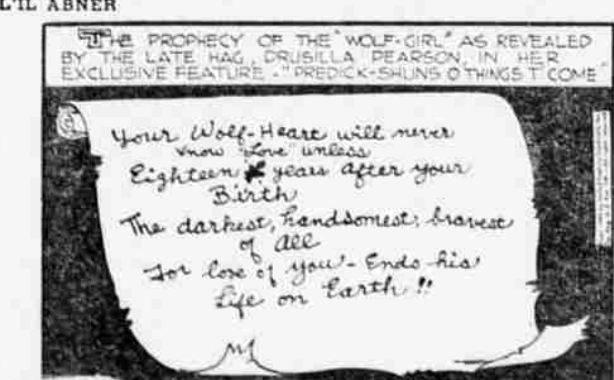 L'IL ABNER
THE PROPHECY OF THE "WOLF-GIRL" AS REVEALED
BY THE LATE HAG, DRUSILLA PEARSON, IN HER
EXCLUSIVE FEATURE - "PREDICK-SHUNS O THINGS T' COME"
Your Wolf-Heart will never
know "Love" unless
Eighteen years after your
Birth
The darkest, handsomest, bravest
of all
For love of you - Ends his
Life on Earth!!